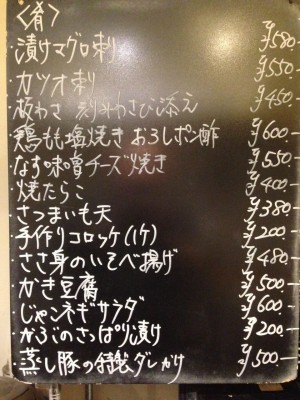 〈肴〉
・漬けマグロ刺 ¥580.
・カツオ刺 ¥550.
・板わさ 刻みわさび添え ¥450.
・鶏もも塩焼き おろしポン酢 ¥600.
・なす味噌チーズ焼き ¥550.
・焼たらこ ¥400.
・さつまいも天 ¥380.
・手作りコロッケ(1ケ) ¥200.
・ささ身のいそべ揚げ ¥480.
・かき豆腐 ¥500.
・じゃンネギサラダ ¥600.
・かぶのさっぱり漬け ¥200.
・蒸し豚の特製ダレかけ ¥500.